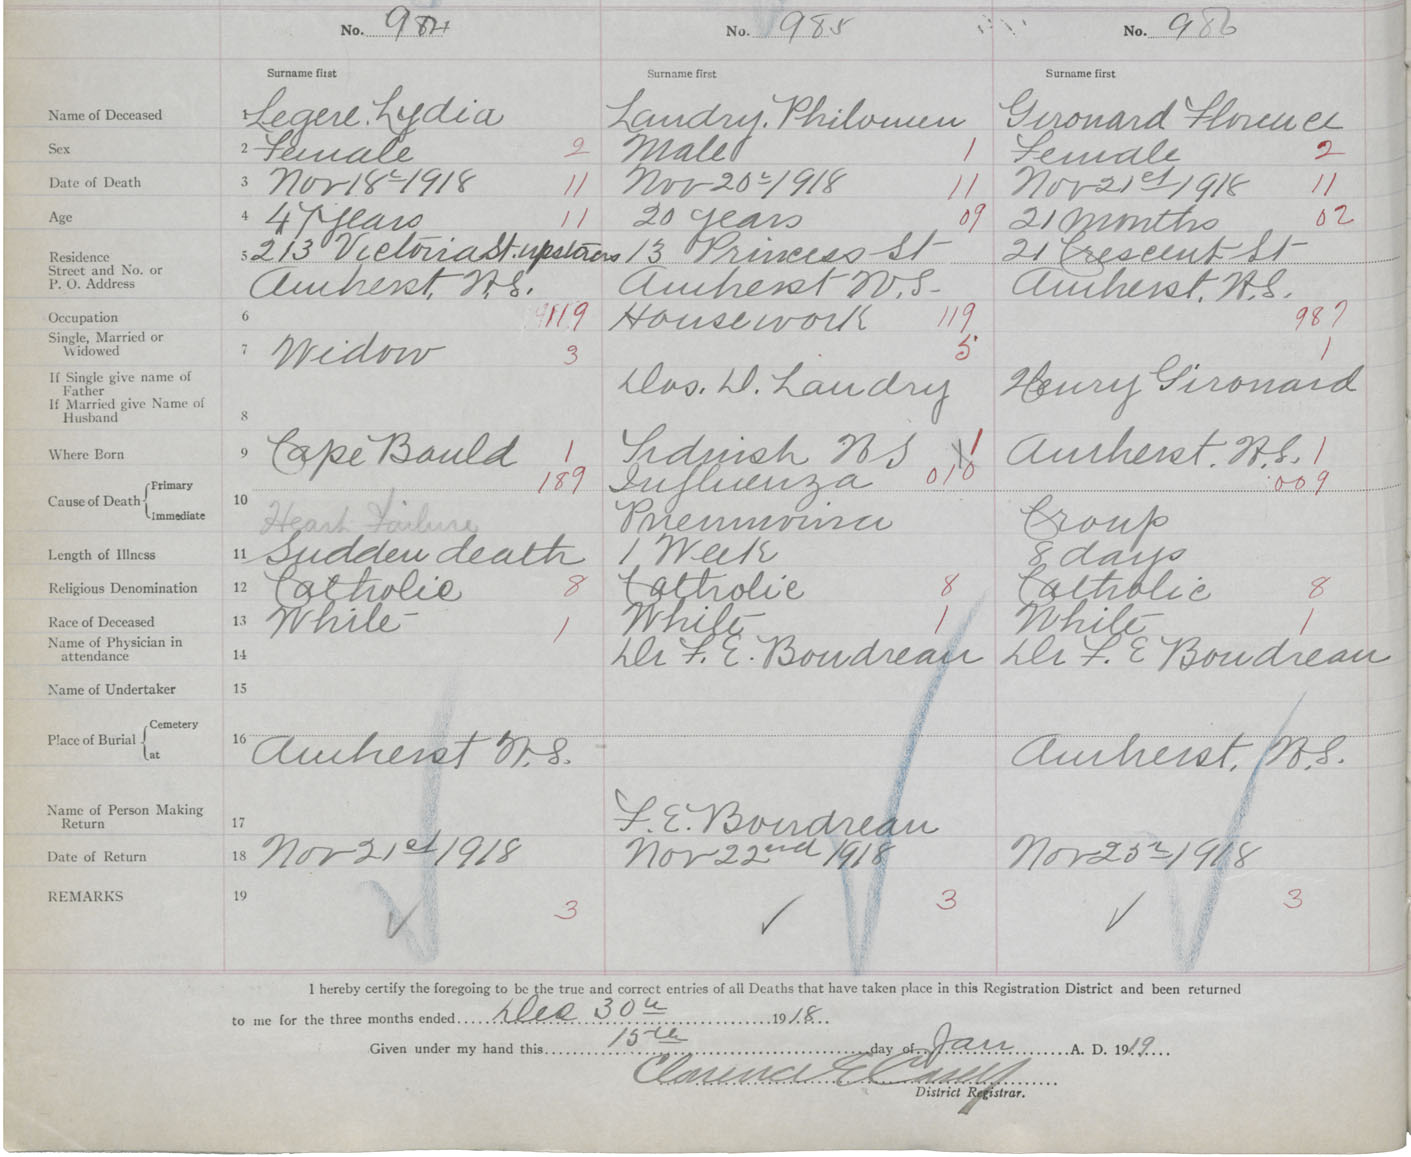 No. 984 No. 985 No. 986
Surname first Surname first Surname first
Name of Deceased 1 Legere. Lydia Landry. Philomen Gironard Florence
Sex 2 Female 2 Male 1 Female 2
Date of Death 3 Nov 18th 1918 11 Nov 20th 1918 11 Nov 21st 1918 11
Age 4 47 years 11 20 years 09 21 Months 02
Residence 5 213 Victoria St. upstairs 13 Princess St 21 Crescent St
Street and No. or
P. O. Address Amherst, N.S. Amherst N.S. Amherst, N.S.
Occupation 6 119 Housework 119 987
Single, Married or
Widowed 7 Widow 3 5 1
If Single give name of
Father Dos. D. Landry Henry Gironard
If Married give Name of
Husband 8
Where Born 9 Cape Bauld 1 N S 1 Amherst. N.S. 1
Cause of Death Primary 189 Influenza 010 009
Immediate 10 Heart Failure Pneumonia Croup
Length of Illness 11 Sudden death 1 Week 8 days
Religious Denomination 12 Catholic 8 Catholic 8 Catholic 8
Race of Deceased 13 White 1 White 1 White 1
Name of Physician in
attendance 14 Dr F. E. Boudreau Dr F. E Boudreau
Name of Undertaker 15
Place of Burial Cemetery
at 16 Amherst N.S. Amherst, N.S.
Name of Person Making
Return 17 F. E. Boudreau
Date of Return 18 Nov 21st 1918 Nov 22nd 1918 Nov 1918
REMARKS 19 3 3 3
I hereby certify the foregoing to be the true and correct entries of all Deaths that have taken place in this Registration District and been returned
to me for the three months ended Dec 30th 1918
Given under my hand this 15th day of Jan A. D. 1919
Clarence E Casey
District Registrar.